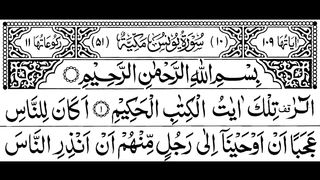 اٰيَاتُهَا ١٠٩ (١٠) سُوْرَةُ يُوْنُسَ مَكِّيَّةٌ (٥١) رُكُوْعَاتُهَا ١١
بِسْمِ اللّٰهِ الرَّحْمٰنِ الرَّحِيْمِ
الٓرٰ تِلْكَ اٰيٰتُ الْكِتٰبِ الْحَكِيْمِ ۝١ اَكَانَ لِلنَّاسِ
عَجَبًا اَنْ اَوْحَيْنَاۤ اِلٰى رَجُلٍ مِّنْهُمْ اَنْ اَنْذِرِ النَّاسَ